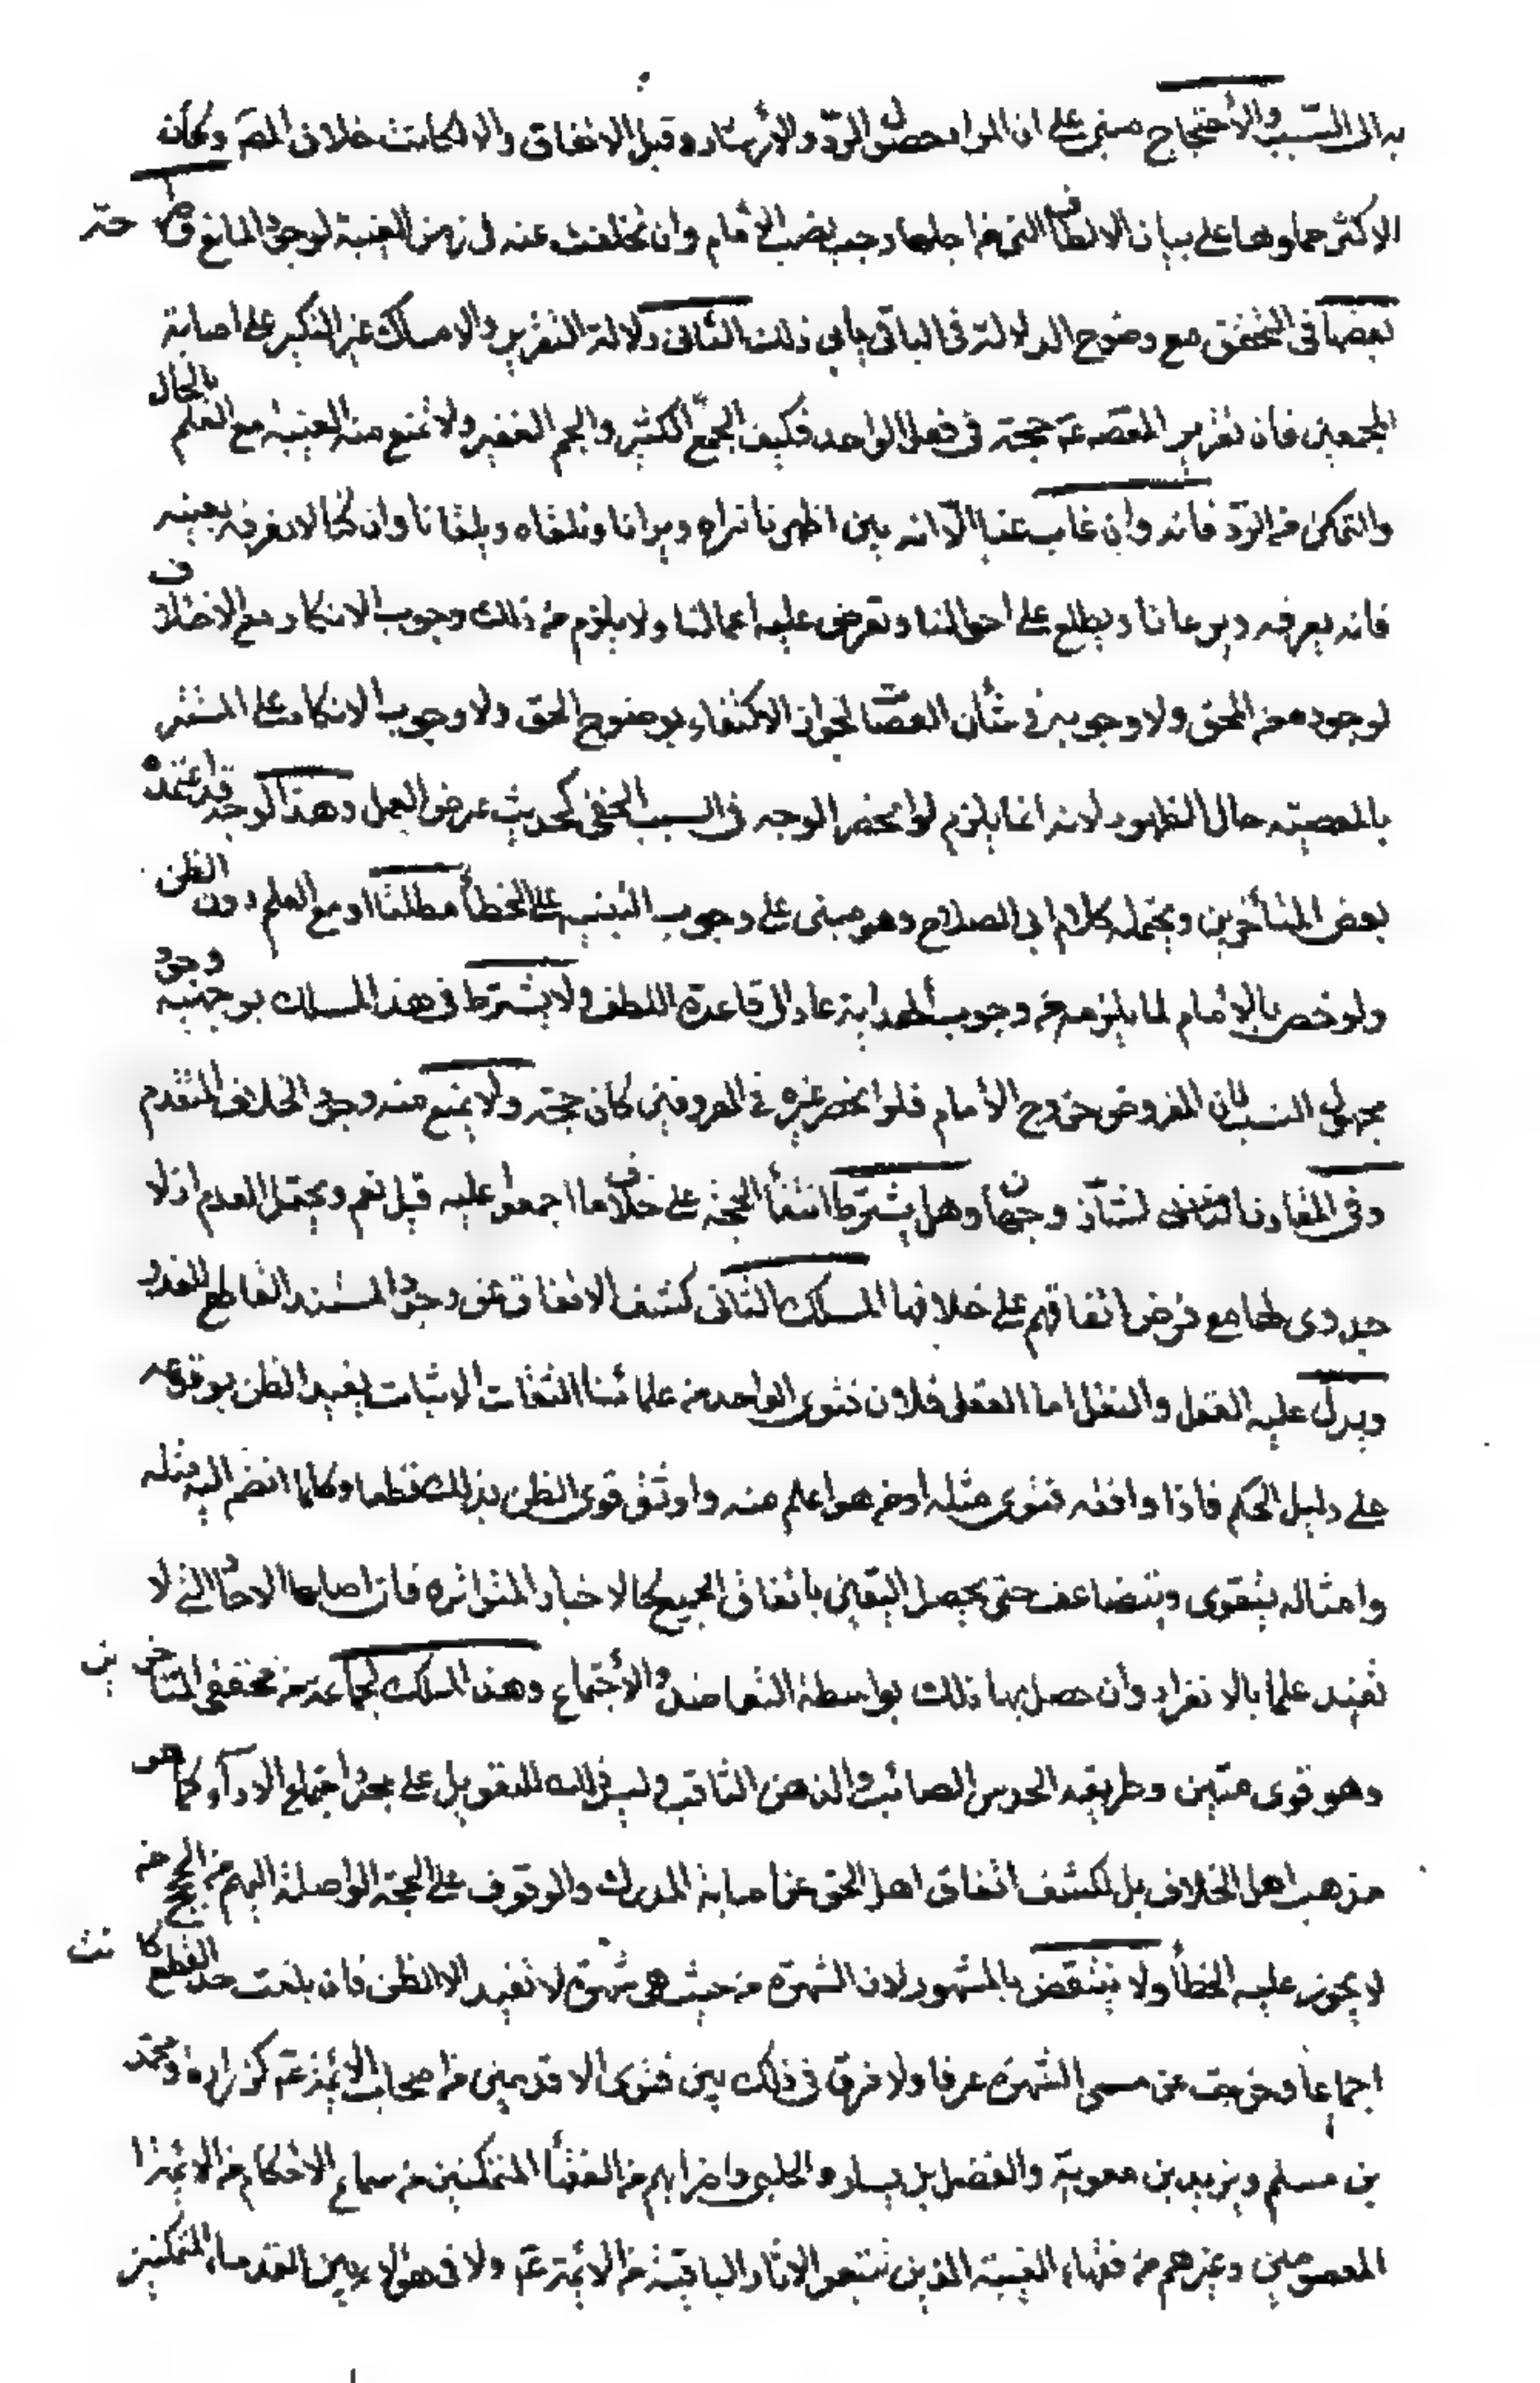 به الى التسبب والأحتجاج مبنى على ان المراد حصول الردّ والأرشاد وقبل الاتفاق والا لكانت خلاف المص وكأن
الاكثر حماوها على بيان الالطاف التى من اجلها وجب نصب الأمام وان تخلفت عنه فى زمن الغيبة لوجود المانع فى حتى
بعضها فى التحقق مع وضوح الدلالة فى الباقى يابى ذلك الثانى دلالة التقرير والامساك عن النكير على اصابة
المجمعين فان تقرير المعصوم عم حجة فى فعل الواحد فكيف الجمع الكثير والجم الغفير ولا تمنع منه الغيبة مع العلم بالحال
والتمكن من الردّ فانه وان غاب عنا الّا انه بين اظهرنا نراه ويرانا ونلقاه ويلقانا وان كنّا لا نعرفه بعينه
فانه يعرفه ويرعانا ويطلع على احوالنا وتعرض عليه اعمالنا ولا يلزم من ذلك وجوب الانكار مع الاختلاف
لوجود معه المحق ولا وجوبه فى شأن العصاة لجواز الاكتفاء بوضوح الحق ولا وجوب الانكار على المستتر
بالمعصية حال الظهور لانه انما يلزم لو انحصر الوجه فى السبب الخفى كحديث عرض العمل وهذا الوجه قد اعتمده
بعض المتأخرين ويحتمله كلام ابى الصلاح وهو مبنى على وجوب التنبيه على الخطأ مطلقا او مع العلم دون الظن
ولو خص بالإمام لما يلزمه من وجوب الهداية عاد الى قاعدة اللطف ولا يشترط فى هذا المسلك وجود
مجهول النسب لان المفروض خروج الأمام فلو انحصر غيره فى المعروفين كان حجة ولا يمنع منه وجود الخلاف المتقدم
وفى المقارن الشاذ وجهان وهل يشترط انتفأ الحجة على خلاف ما اجمعوا عليه قيل نعم ويحتمل العدم اذ لا
جدوى لها مع فرض اتفاقهم على خلافها المسلك الثانى كشف الاتفاق عن وجود المستند القاطع للعذر
ويدل عليه العقل والنقل اما العقل فلان فتوى الواحد من علمائنا الثقات الاثبات يفيد الظن بوقوعه
على دليل الحكم فاذا وافقه فتوى مثله او من هو اعلم منه واوثق قوى الظن بذلك قطعا وكلما انضم اليه مثله
وامثاله يتقوى ويتضاعف حتى يحصل اليقين باتفاق الجميع كالاخبار المتواترة فان اصلها الاحاد التى لا
تفيد علما بالانفراد وان حصل بها ذلك بواسطة التعاضد والأجتماع وهذا المسلك لجماعة من محققى المتأخرين
وهو قوى متين وطريقه الحدس الصائب والذهن الثاقب وليس ذلك للتعويل على مجرد اجتماع الارآء كما هو
مذهب اهل الخلاف بل لكشف اتفاق اهل الحق عن اصابة المدرك والوقوف على الحجة الواصلة اليهم من الحجج من
لا يجوز عليه الخطأ ولا ينتقض بالمشهور لان الشهرة من حيث هى شهرة لا تفيد الا الظن فان بلغت حد القطع كانت
اجماعا وخرجت عن مسمى الشهرة عرفا ولا فرق فى ذلك بين فتوى الاقدمين من اصحاب الائمة عم كزرارة ومحمد
بن مسلم وبريد بن معوية والفضيل بن يسار والحلبى واضرابهم من الفقهأ المتمكنين من سماع الاحكام من الائمة
المعصومين وغيرهم من فقهاء الغيبة الذين تتبعوا الاثار الباقية من الائمة عم ولا فى هؤلاء بين القدماء المتمكنين